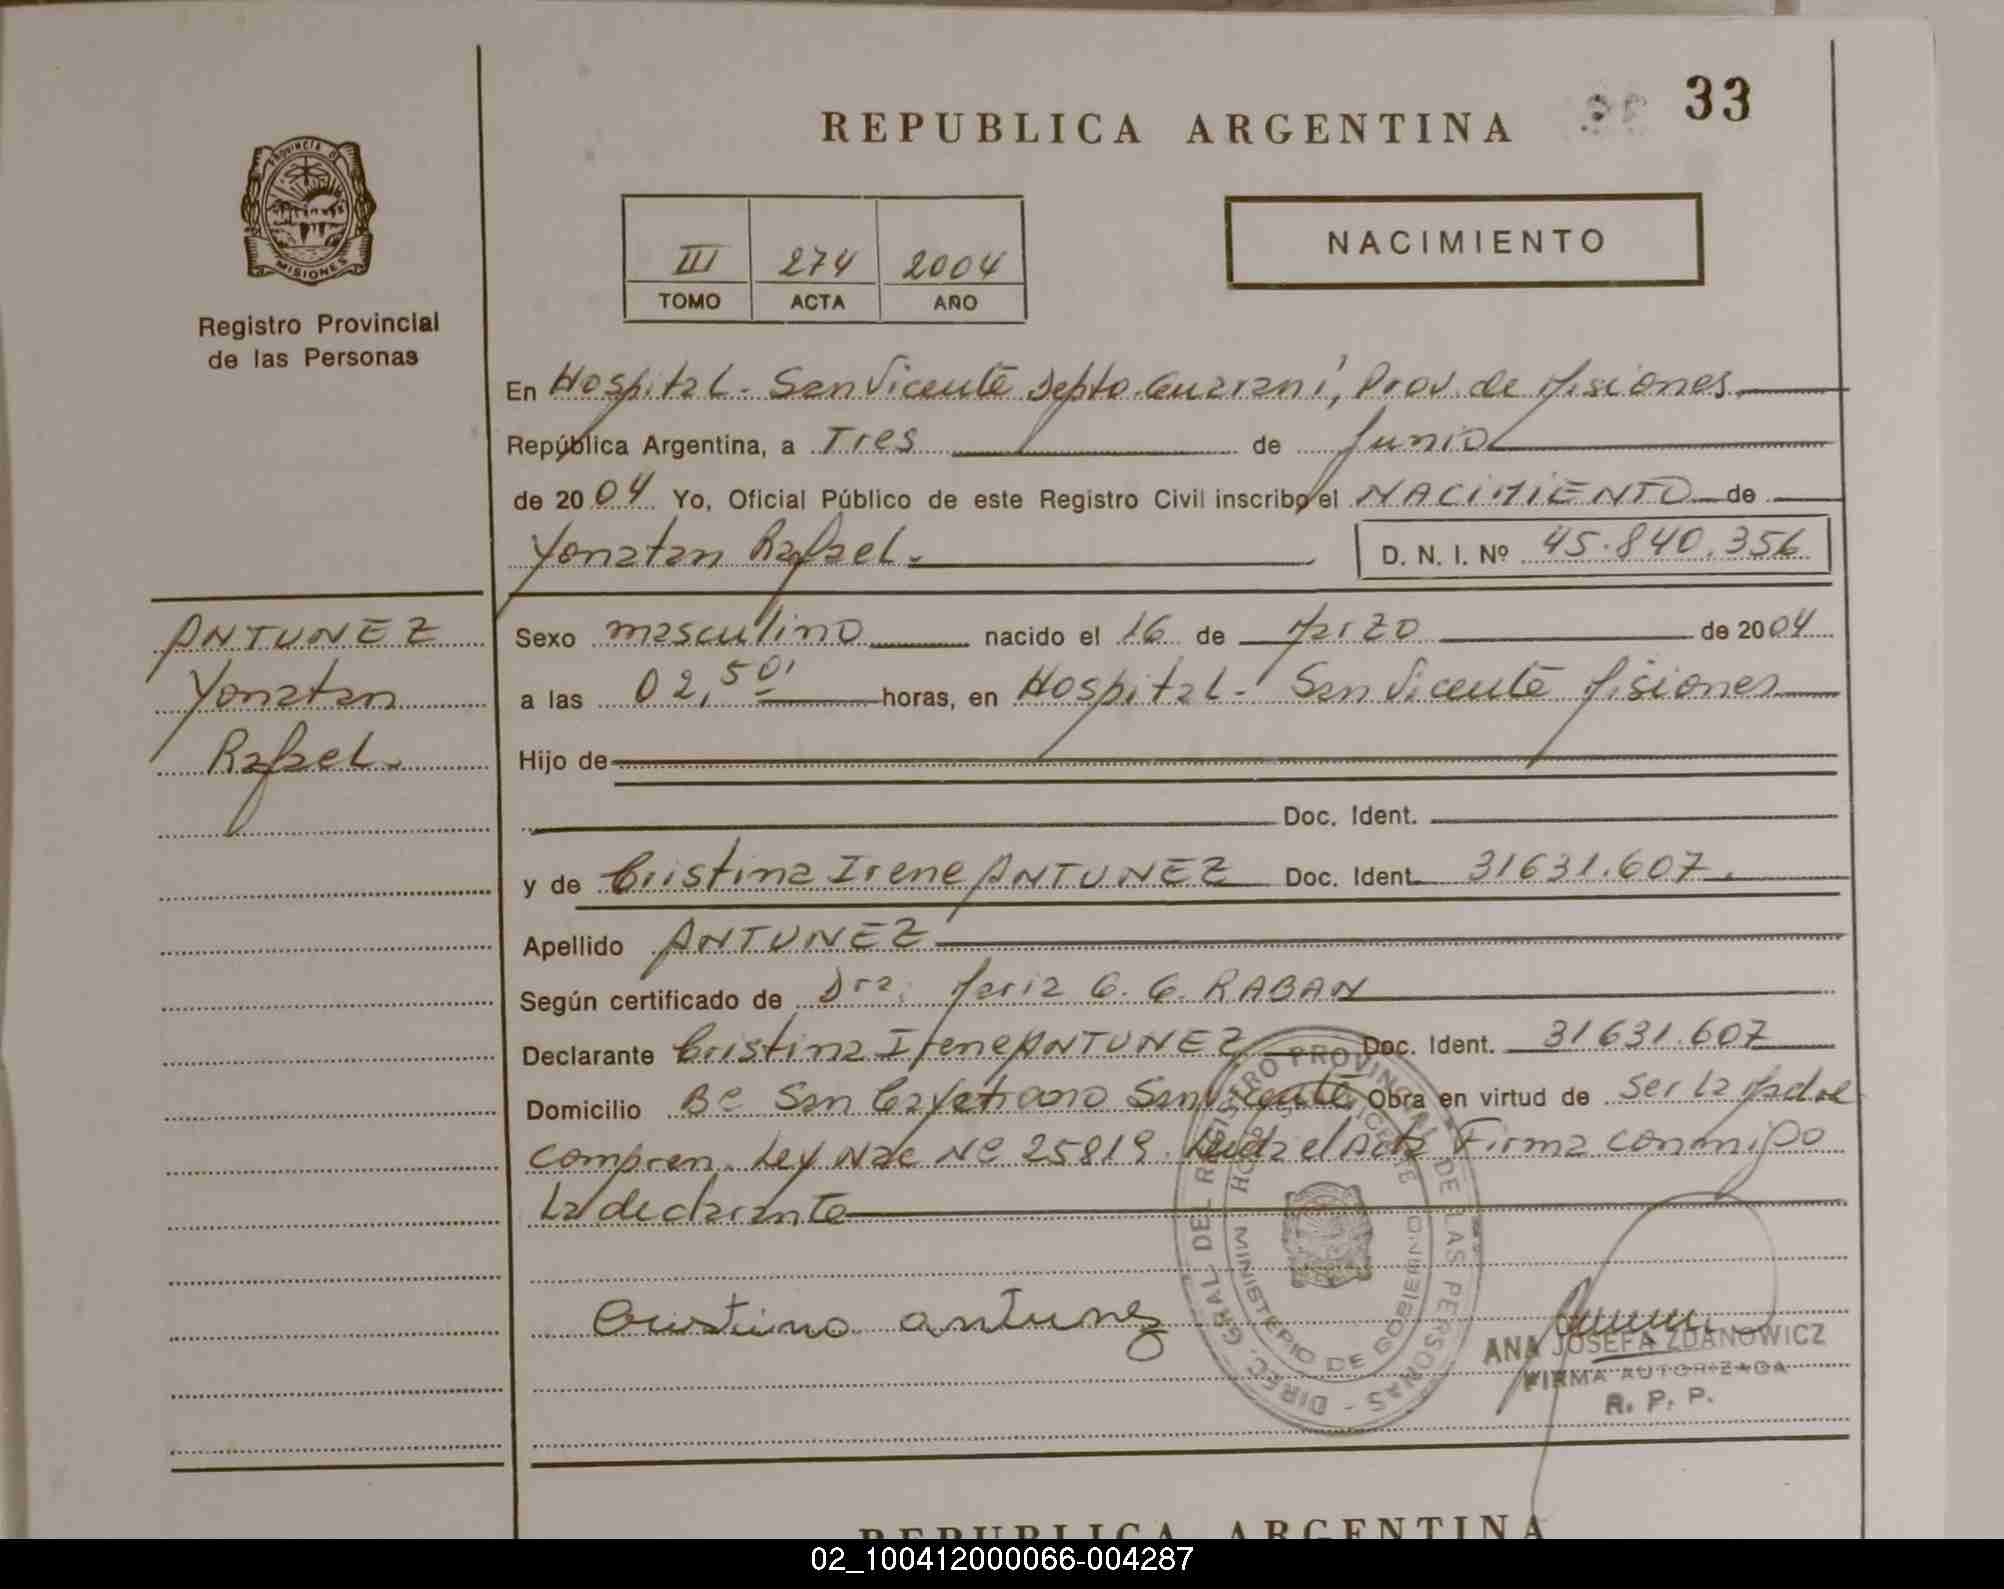 33
REPUBLICA ARGENTINA
PROVINCIA DE
MISIONES
Registro Provincial
de las Personas
III 274 2004
TOMO ACTA AÑO
NACIMIENTO
En Hospital - San Vicente Depto. Guaraní, Prov. de Misiones
República Argentina, a Tres de Junio
de 2004 Yo, Oficial Público de este Registro Civil inscribo el NACIMIENTO de
Yonatan Rafael.
D. N. I. Nº 45.840.356
ANTUNEZ
Yonatan
Rafael.
Sexo masculino nacido el 16 de Marzo de 2004
a las 02,50' horas, en Hospital - San Vicente Misiones
Hijo de
Doc. Ident.
y de Cristina Irene ANTUNEZ Doc. Ident. 31631.607.
Apellido ANTUNEZ
Según certificado de Dra. Maria G. G. RABAN
Declarante Cristina Irene ANTUNEZ Doc. Ident. 31631.607
Domicilio Bº San Cayetano San Vicente Obra en virtud de ser la Madre
Compren. Ley Nac Nº 25819. Leida el Acta Firma conmigo
La declarante
DIREC. GRAL. DEL REGISTRO PROVINCIAL DE LAS PERSONAS -
MINISTERIO DE GOBIERNO
Cristina antunez
ANA JOSEFA ZDANOWICZ
FIRMA AUTORIZADA
R. P. P.
REPUBLICA ARGENTINA
02_100412000066-004287